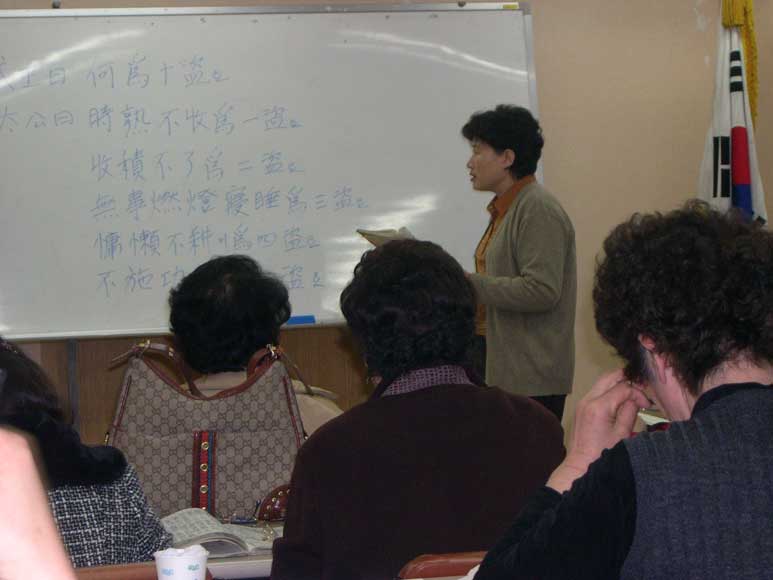 王曰 何爲十盜
太公曰 時熟不收爲一盜
收積不了爲二盜
無事燃燈寢睡爲三盜
慵懶不耕爲四盜
不施功 盜